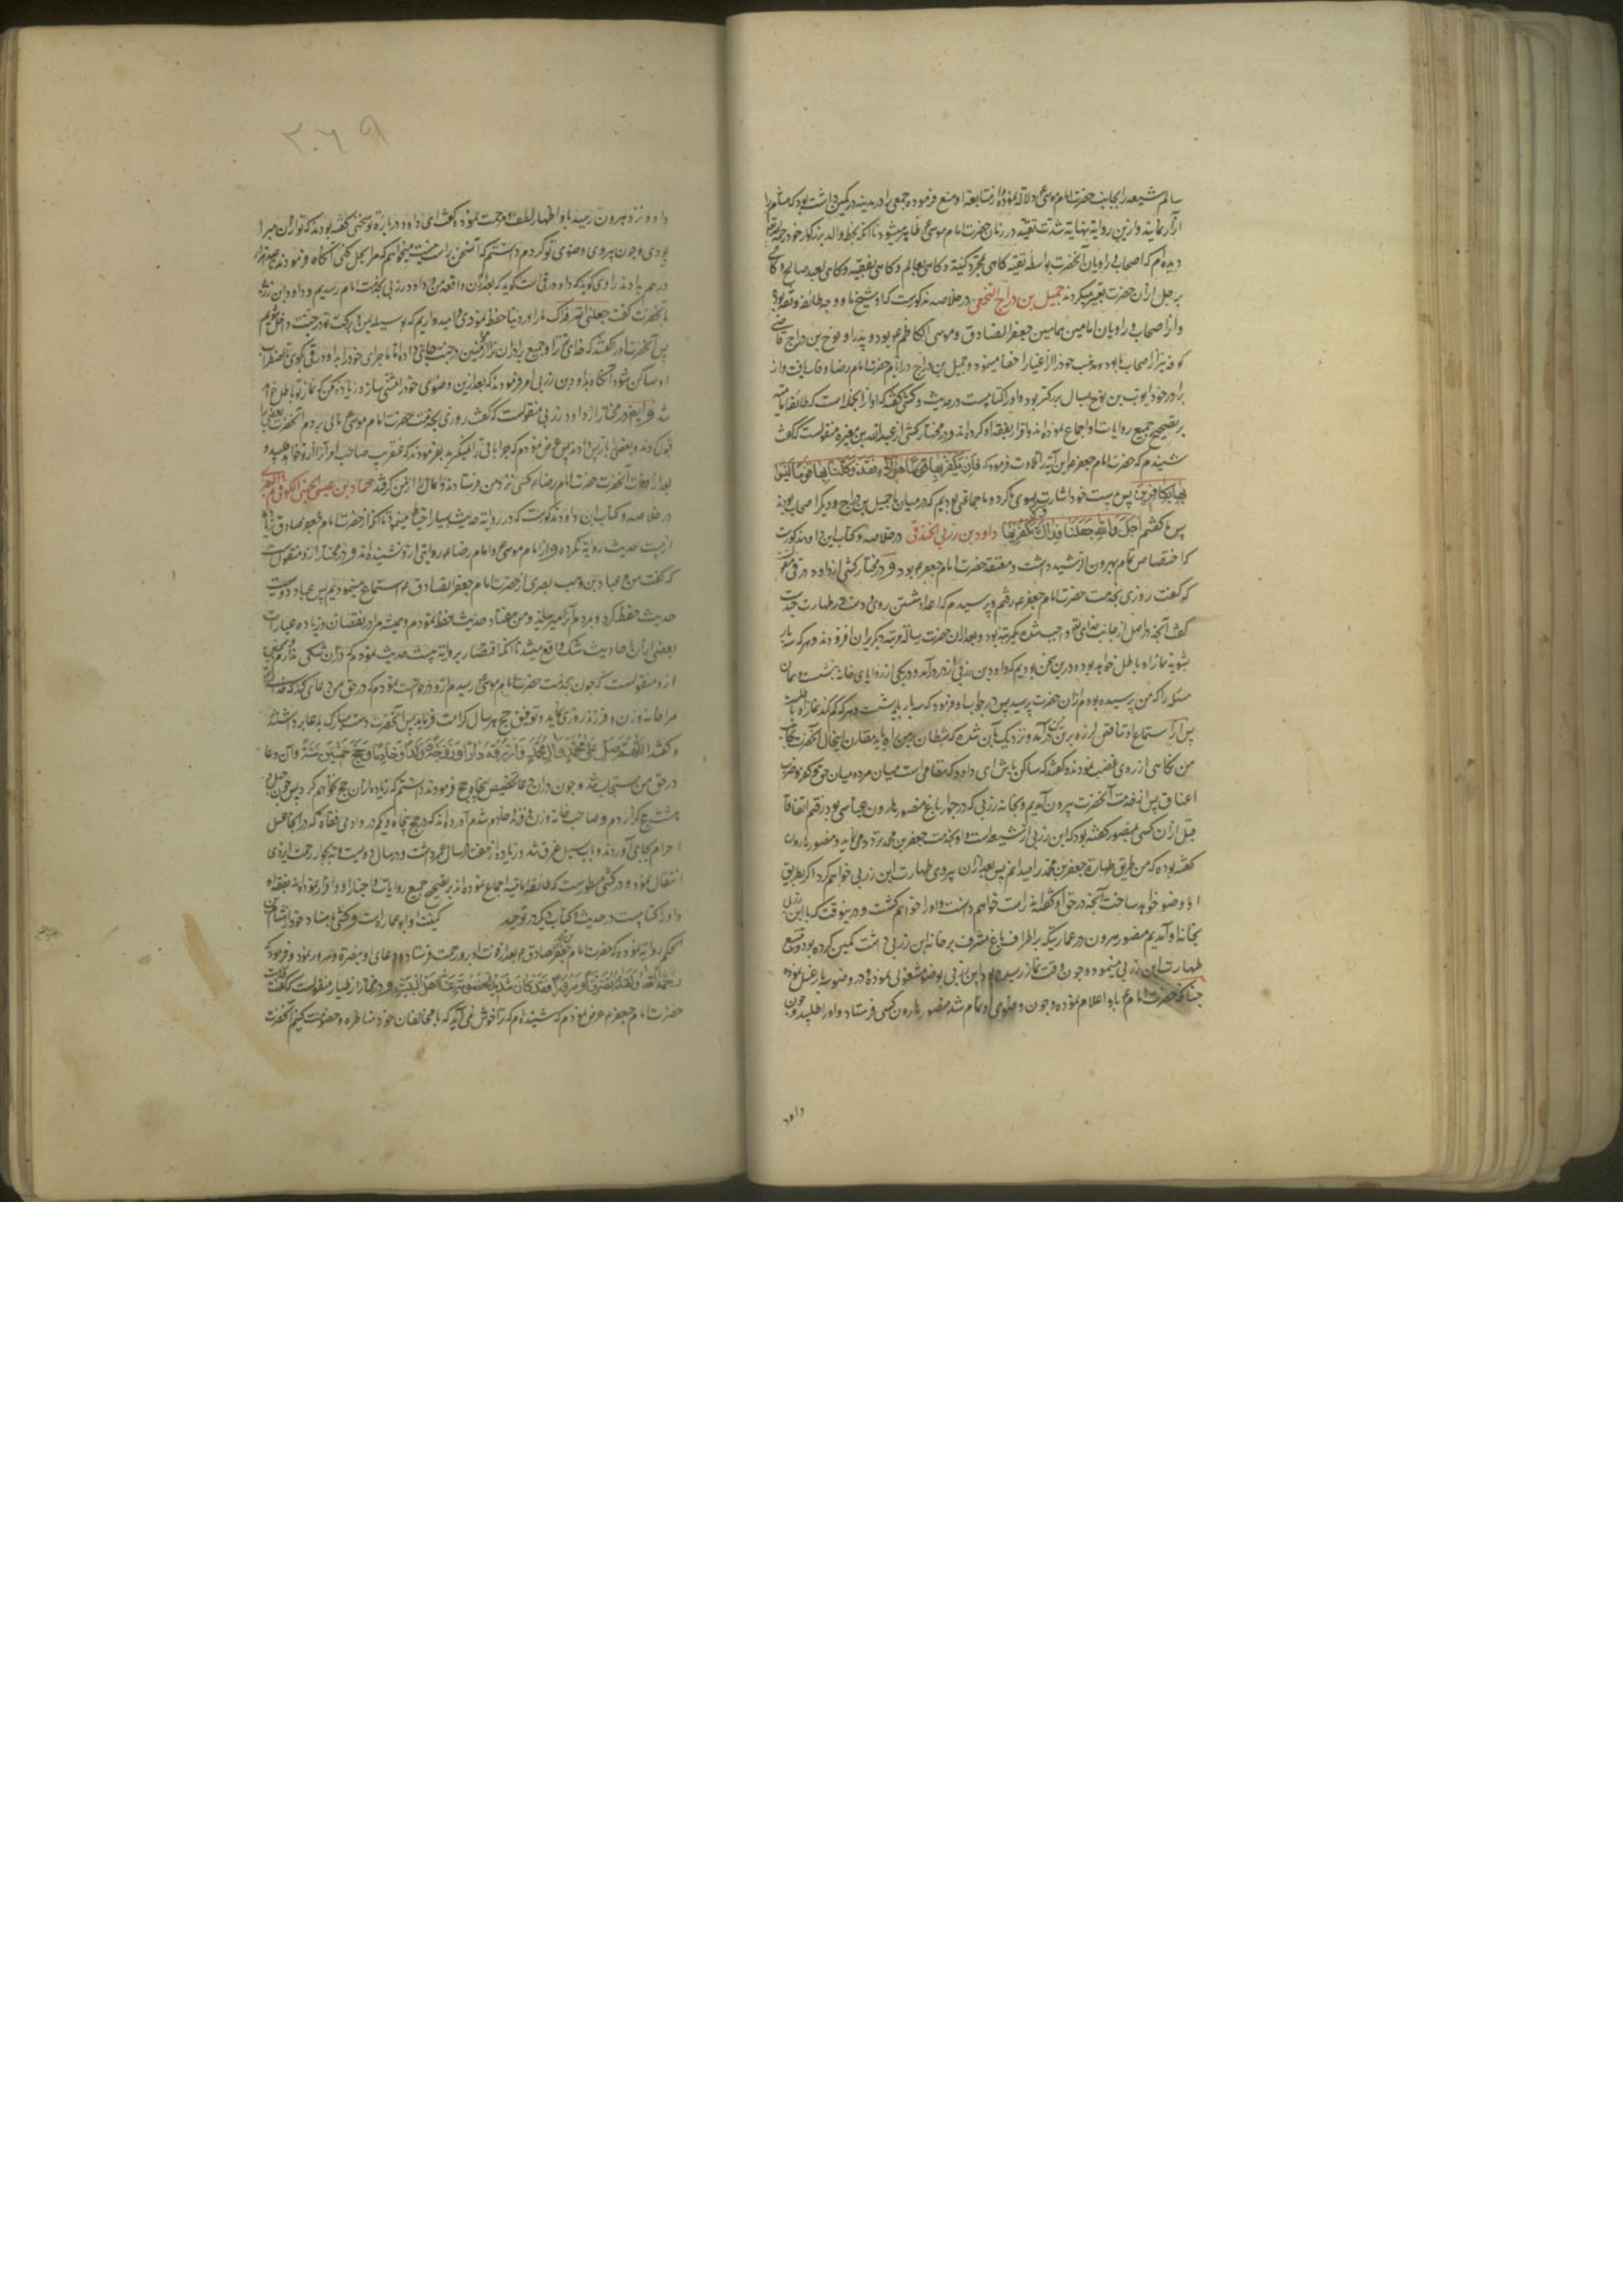 سالم شیعه را بجانب حضرت امام موسی ع دلالت نموده از متابعة او منع فرمود و جمعی را در مدینه در کمین داشت بود که هشام را
آزار نمایند و ازین روایة نهایة شدت تقیه در زمان حضرت امام موسی ع ظاهر میشود تا آنکه بخط والد بزرگوار خود
دیده‌ام که اصحاب و راویان آنحضرت بواسطه تقیه کاهی بمجرد کنیة و کاهی بعالم و کاهی بفقیه و کاهی بعبد صالح و کاهی
برجل از آن حضرت تعبیر میکردند جمیل بن دراج النخعی در خلاصه مذکورست که او شیخ ما و وجه طائفه و ثقه بود
و از اصحاب و راویان امامین همامین جعفر الصادق و موسی الکاظم ع بود و پدر او نوح بن دراج قاضی
کوفه نیز از اصحاب ما بود و مذهب خود را از اغیار اخفا مینمود و جمیل بن دراج در ایام حضرت امام رضا وفات یافت و از
برادر خود ایوب بن نوح بسال بزرگتر بود و اورا کتابیست در حدیث و کشی گفته که او از انجمله است که طائفه امامیه
بر تصحیح جمیع روایات او اجماع نموده‌اند و اقرار بفقه او کرده‌اند و در مختار کشی از عبدالله بن مغیره منقولست که گفت
شنیدم که حضرت امام جعفر ع این آیة را تلاوت فرمود که فان یکفر بها هؤلاء فقد وکلنا بها قوما لیسوا
بها بکافرین پس بدست خود اشارت بسوی ما کرد و ما جماعتی بودیم که در میان ما جمیل بن دراج و دیگر اصحاب بودند
پس ما گفتیم اجل والله جعلنا فداک لا نکفر بها داود بن زربی الخندقی در خلاصه و کتاب ابن داود مذکورست
که اختصاص تمام بهرون الرشید داشت و معتقد حضرت امام جعفر ع بود و در مختار کشی از داود رقی منقولست
که گفت روزی بخدمت حضرت امام جعفر ع رفتم و پرسیدم که اعداد شستن روی و دست در طهارت چندست
گفت آنچه در اصل از جانب خدای تعالی واجب شده یکمرتبه بود و بعد از آن حضرت رسالة مرتبه دیگر بر آن افزودند و هر که سه بار
بشوید نماز او باطل خواهد بود و درین سخن بودیم که داود بن زربی از در درآمد و در یکی از زوایای خانه بنشست و همان
مسئله را که من پرسیده بودم از آن حضرت پرسید پس در جواب او فرمود که سه بار باید شست و هر که کم کند نماز او باطلست
پس از استماع او تناقض لرزه بر تن من درآمد و نزدیک بآن شد که شیطان بر من راه یابد مقارن اینحال آنحضرت بجانب
من نگاهی از روی غضب نمودند و گفتند که ساکن باش ای داود که مقامی است میان مرده میان حق کفر و ضرب
اعناق پس از خدمت آنحضرت بیرون آمدیم و بخانه زربی که در جوار باغ منصور هارون عباسی بود رفتم اتفاقا
قبل از آن کسی بمنصور گفته بود که ابن زربی از شیعه است و او بخدمت جعفر بن محمد تردد می‌نماید و منصور هارون
گفته بوده که من طریق طهارة جعفر بن محمد را میدانم پس بعد از آن پیروی طهارت ابن زربی خواهم کرد اگر بطریق
او وضو خواهد ساخت آنچه در حق او گفته‌اند راست خواهم دانست و اورا خواهم کشت و درینوقت که با ابن زربی
بخانه او آمدیم منصور هرون در عمارتی که بر اطراف باغ مشرف بر خانه ابن زربی داشت کمین کرده بود و تتبع
طهارت ابن زربی مینمود و چون وقت نماز رسیده بود ابن زربی بوضو مشغولی نموده و در وضو سه بار غسل نموده
چنانکه حضرت امام ع باو اعلام نموده و چون وضوی او تمام شد منصور هارون کسی فرستاد و اورا طلبید و چون
داود
٢٦٩
داود نزد هرون رسید باو اظهار لطف و محبت نمود و گفت ای داود درباره تو سخنی گفته بودند که تو از آن مبرا
بودی و چون پیروی وضوی تو کردم دانستم که آن سخن راست نیست میخواهم که مرا بحل کنی آنگاه فرمودند تا صد هزار
درهم باو دند راوی گوید که داود رقی است گوید که بعد از آن واقعه من و داود زربی بخدمت امام رسیدیم و داود ابن زربی
بآنحضرت گفت جعلنی الله فداک ما را در دنیا حفظ نمودی و امیدواریم که بوسیله یمن و برکت تو در جنت داخل شویم
پس آنحضرت اورا گفتند که خدای تعالی ترا و جمیع برادران ترا از مؤمنین در جنت جای دهاد اما ماجرای خود را بداود رقی بگوی تا اضطراب
او ساکن شود آنگاه بداود بن زربی امر فرمودند که بعد ازین وضوی خود را مثنی بساز و زیاده مکن که نماز تو باطل خواهد
شد و ایضا در مختار از داود زربی منقولست که گفت روزی بخدمت حضرت امام موسی ع مالی بردم آنحضرت بعضی را
قبول کردند و بعضی را باز پس دادند پس عرض نمودم که چرا باقی را نمیگیرید بفرمودند که عنقریب صاحب امر آنرا از تو خواهد طلبید و
بعد از وفات آنحضرت حضرت امام رضا ع کسی نزد من فرستادند و آن مال را از من گرفتند حماد بن عیسی الجهنی الکوفی ثم البصری
در خلاصه و کتاب ابن داود مذکورست که در روایة حدیث بسیار احتیاط مینمود تا آنکه از حضرت امام جعفر صادق زیاده
از بیست حدیث روایة نکرده و از امام موسی ع و امام رضا ع روایتی از و نشنیده‌اند و در مختار از و منقولست
که گفت من و عباد بن وهب بصری از حضرت امام جعفر الصادق ع استماع مینمودیم پس عباد دویست
حدیث حفظ کرد و بمردم آنرا میرساند و من هفتاد حدیث حفظ نمودم و همیشه مرا در نقصان و زیاده عبارات
بعضی از آن احادیث شک واقع میشد تا آنکه اقتصار بروایة بیست حدیث نمودم که در آن شکی ندارم و کشی
از و منقولست که چون بخدمت حضرت امام موسی ع رسیدم از و درخواست نمودم که در حق من دعای کند که خدای تعالی
مرا خانه و زن و فرزند روزی نماید و توفیق حج هر سال کرامت فرماید پس آنحضرت دست مبارک بدعا برداشتند
و گفتند اللهم صل علی محمد و آل محمد و ارزقه دارا و زوجة و ولدا و خادما و حج خمسین سنة و آن دعا
در حق من مستجاب شد و چون در آن دعا تخصیص بپنجاه حج فرمودند دانستم که زیاده از آن حج نخواهم کرد پس چون چهل و
هشت حج گزاردم و صاحب خانه و زن و فرزند و خادم شدم آورده‌اند که در حج پنجاه و یکم در وادی قناه که در آنجا غسل
احرام بجای آوردند و بآب سیل غرق شد و زیاده از هفتاد سال عمر داشت و در سال دویست و نه بجوار رحمت ایزدی
انتقال نمود و در کشی مسطورست که طائفه امامیه اجماع نموده‌اند بر تصحیح جمیع روایات و اخبار او و اقرار نموده‌اند بفقه او
و اورا کتابیست در حدیث و کتاب دیگر در توحید کنیت او ابو عماره است و کشی باسناد خود از هشام بن
الحکم روایة نموده که حضرت امام جعفر الصادق ع بعد از فوت او برو رحمت فرستاد و دعای او بنضرة و سرور نمود و فرمود که
رحمه الله ولقاه نضرة و سرورا فقد کان شدید الخصومة عنا اهل البیت و در مختار از طیار منقولست که گفت
حضرت امام جعفر ع عرض نمودم که شنیده‌ام که ترا خوش نمی‌آید که با مخالفان خود مناظره و خصومت کنیم آنحضرت